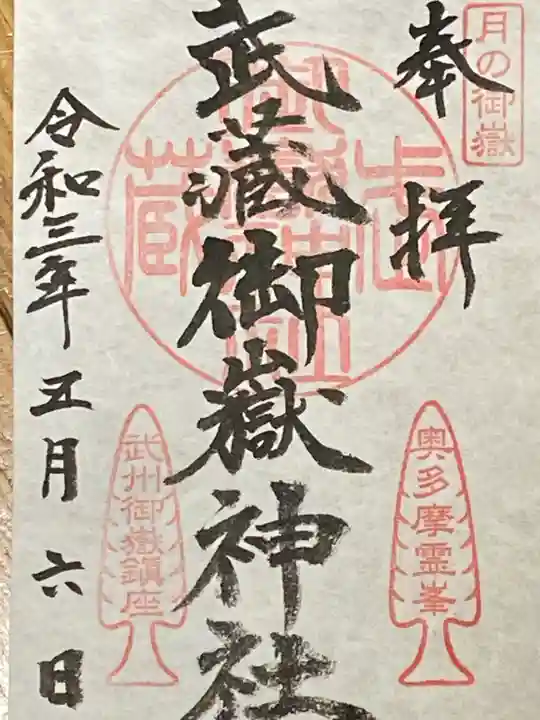 月の御嶽
奉拝
武蔵御嶽神社
武蔵御嶽神社
奥多摩霊峯
武州御嶽鎮座
令和三年五月六日